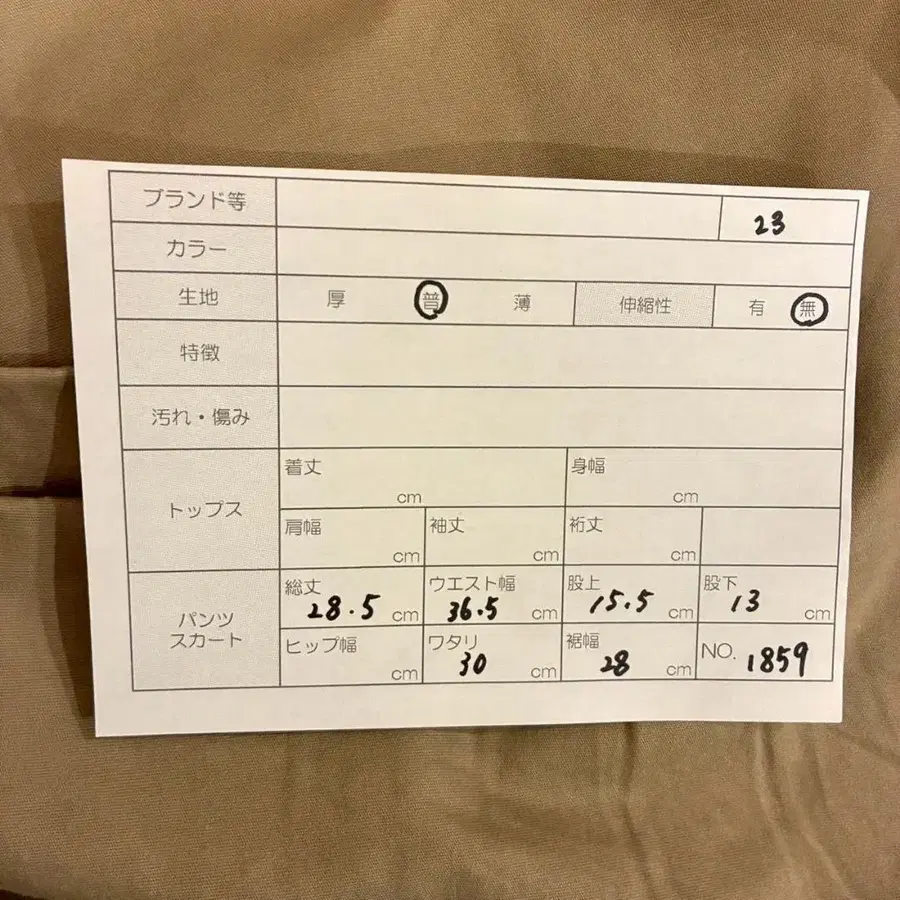 ブランド等 23
カラー
生地 厚 普 薄 伸縮性 有 無
特徴
汚れ・傷み
トップス
着丈 cm 身幅 cm
肩幅 cm 袖丈 cm 裄丈 cm
パンツ
スカート
総丈 28.5 cm ウエスト幅 36.5 cm 股上 15.5 cm 股下 13 cm
ヒップ幅 cm ワタリ 30 cm 裾幅 28 cm NO. 1859